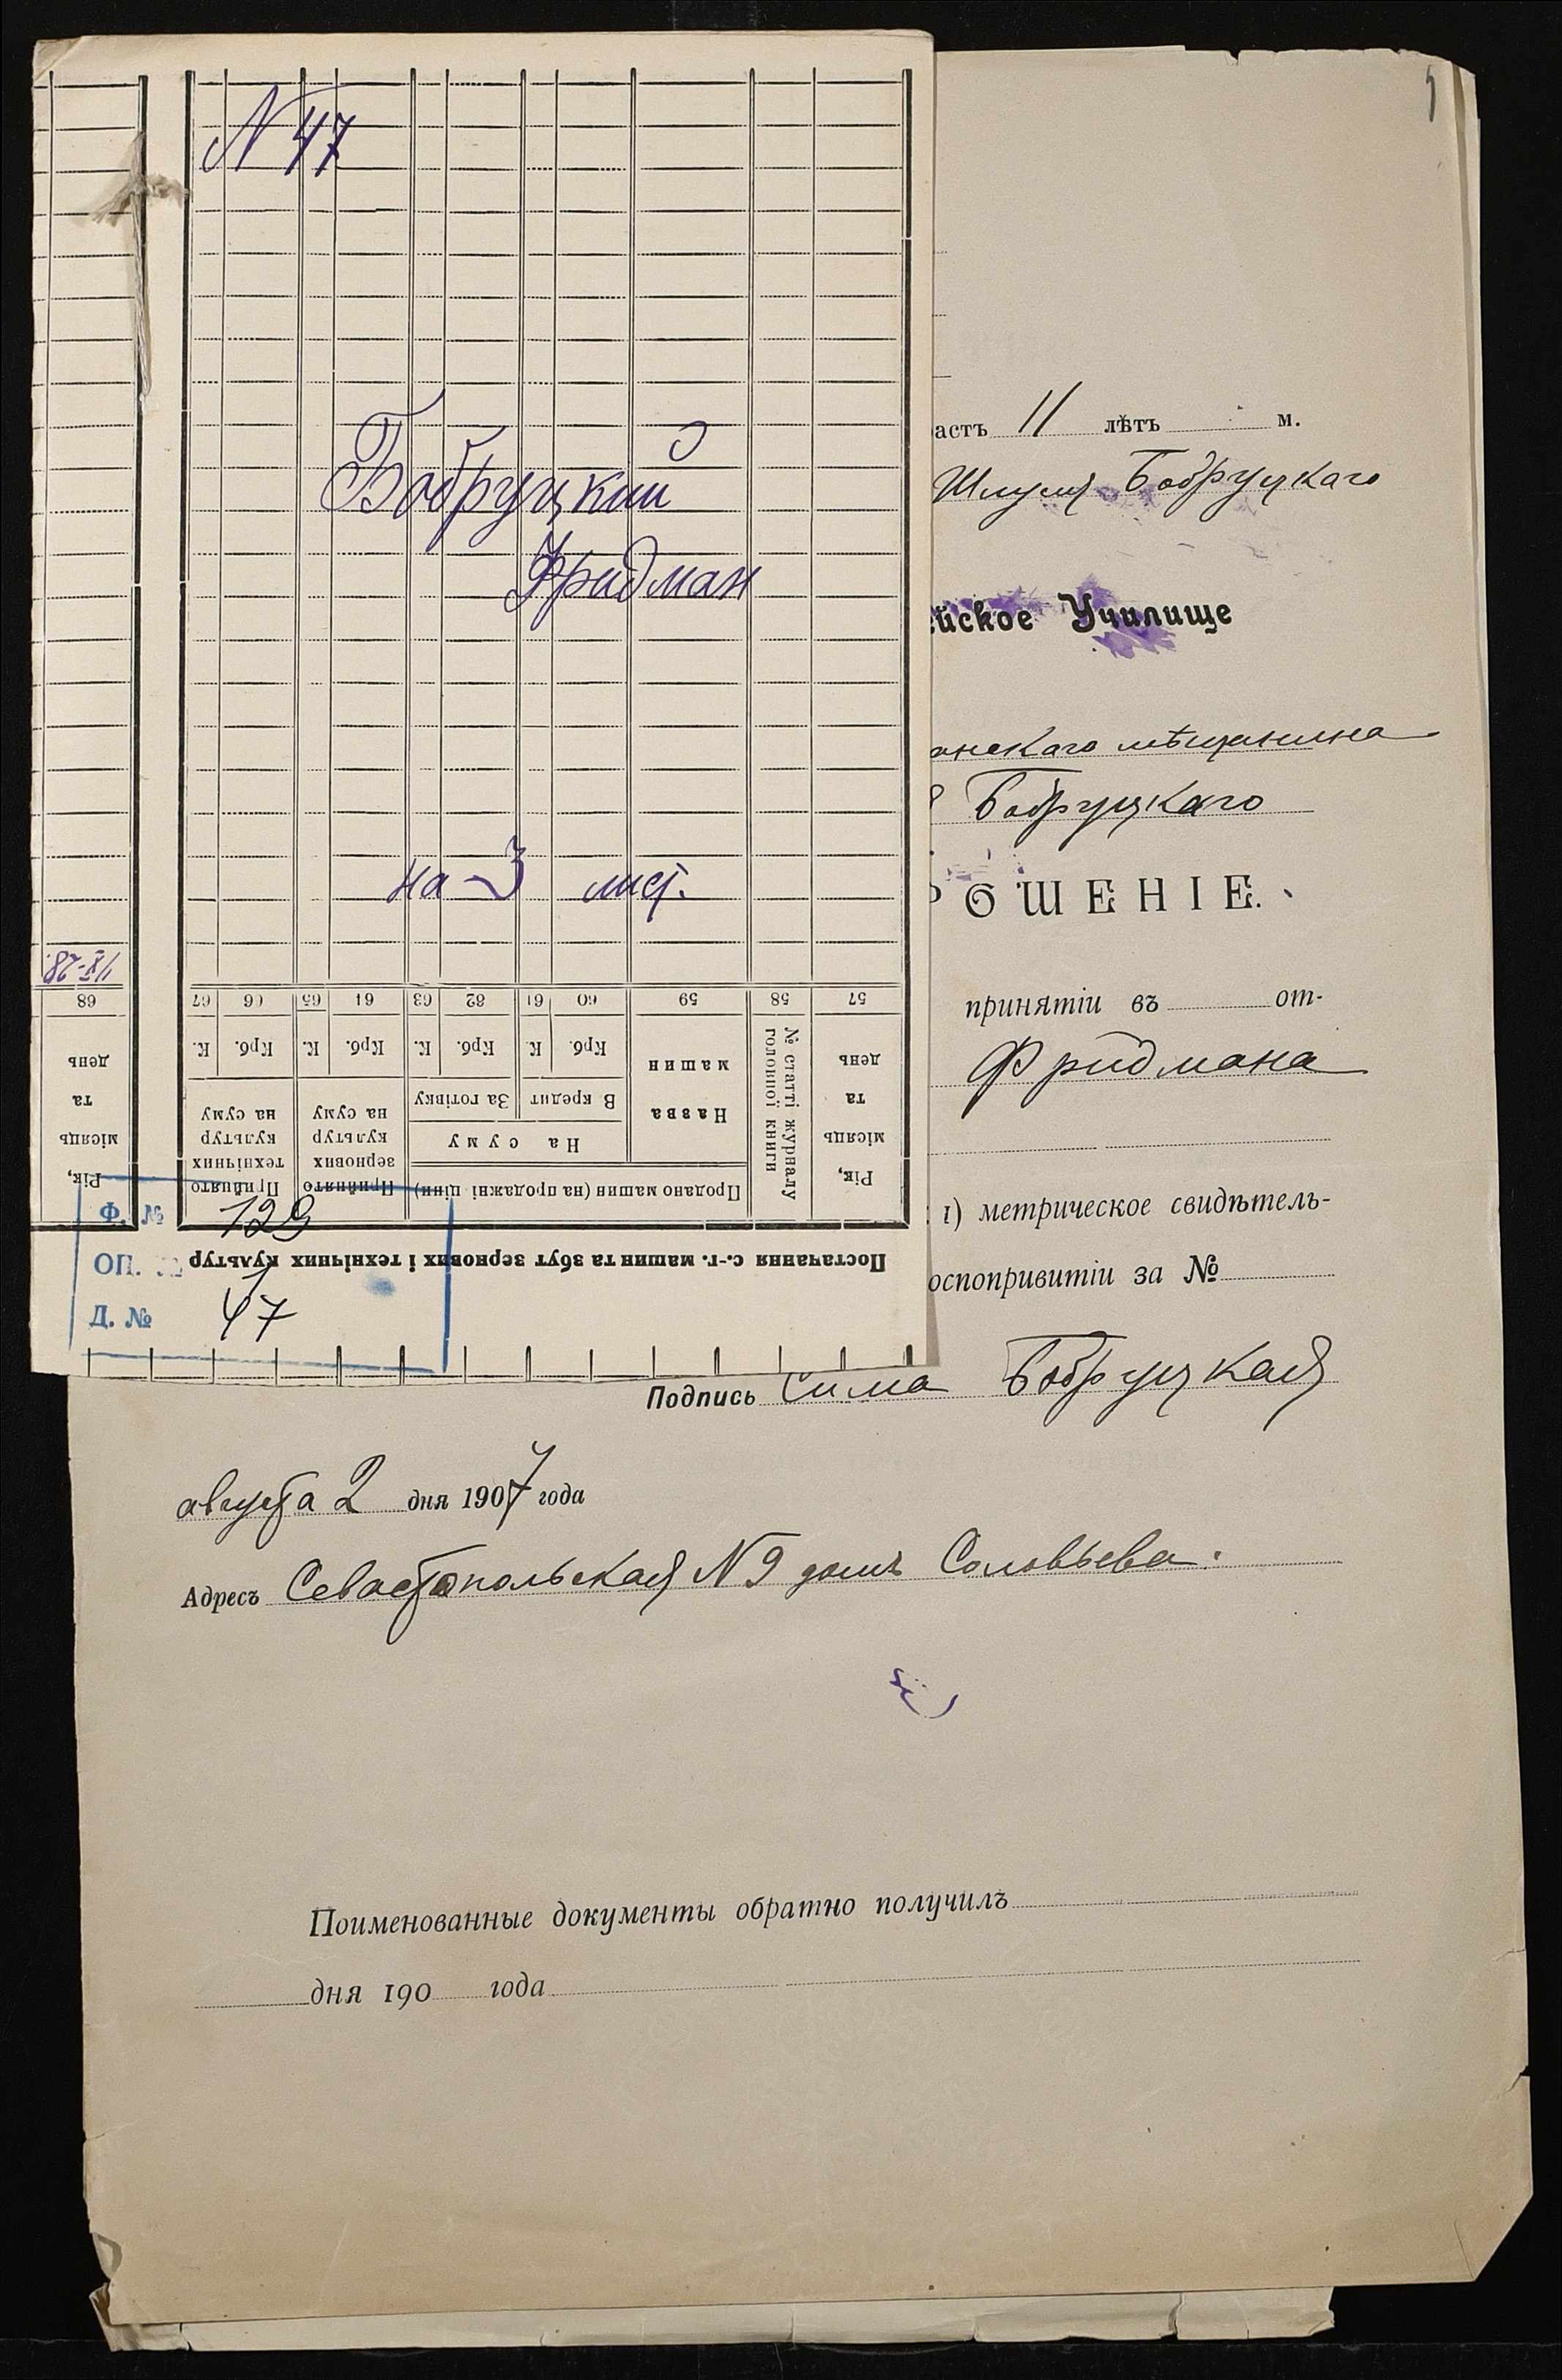 N 47
Бобруцкий
Фридман
на 3 лист.
68
день
та
місяць
Рік,
67
66
65
64
63
62
61
60
59
58
57
К.
Крб.
К.
Крб.
К.
Крб.
К.
Крб.
Прийнято
технічних
культур
на суму
Прийнято
зернових
культур
на суму
За готівку
В кредит
На суму
Назва
машин
Продано машин (на продажні ціни)
№ статті журналу
головної книги
Рік,
місяць
та
день
Постачання с.-г. машин та збут зернових і технічних культур
Ф. № 129
ОП. 1
Д. № 47
5
астъ 11 лѣтъ м.
Шлумя Бобруцкаго
йское Училище
анскаго мѣщанина
Бобруцкаго
РОШЕНІЕ.
принятіи въ от-
Фридмана
1) метрическое свидѣтель-
оспопривитіи за №
Подпись Сима Бобруцкая
августа 2 дня 1907 года
Адресъ Севастопольская N 9 домъ Соловьева.
Поименованные документы обратно получилъ
дня 190 года